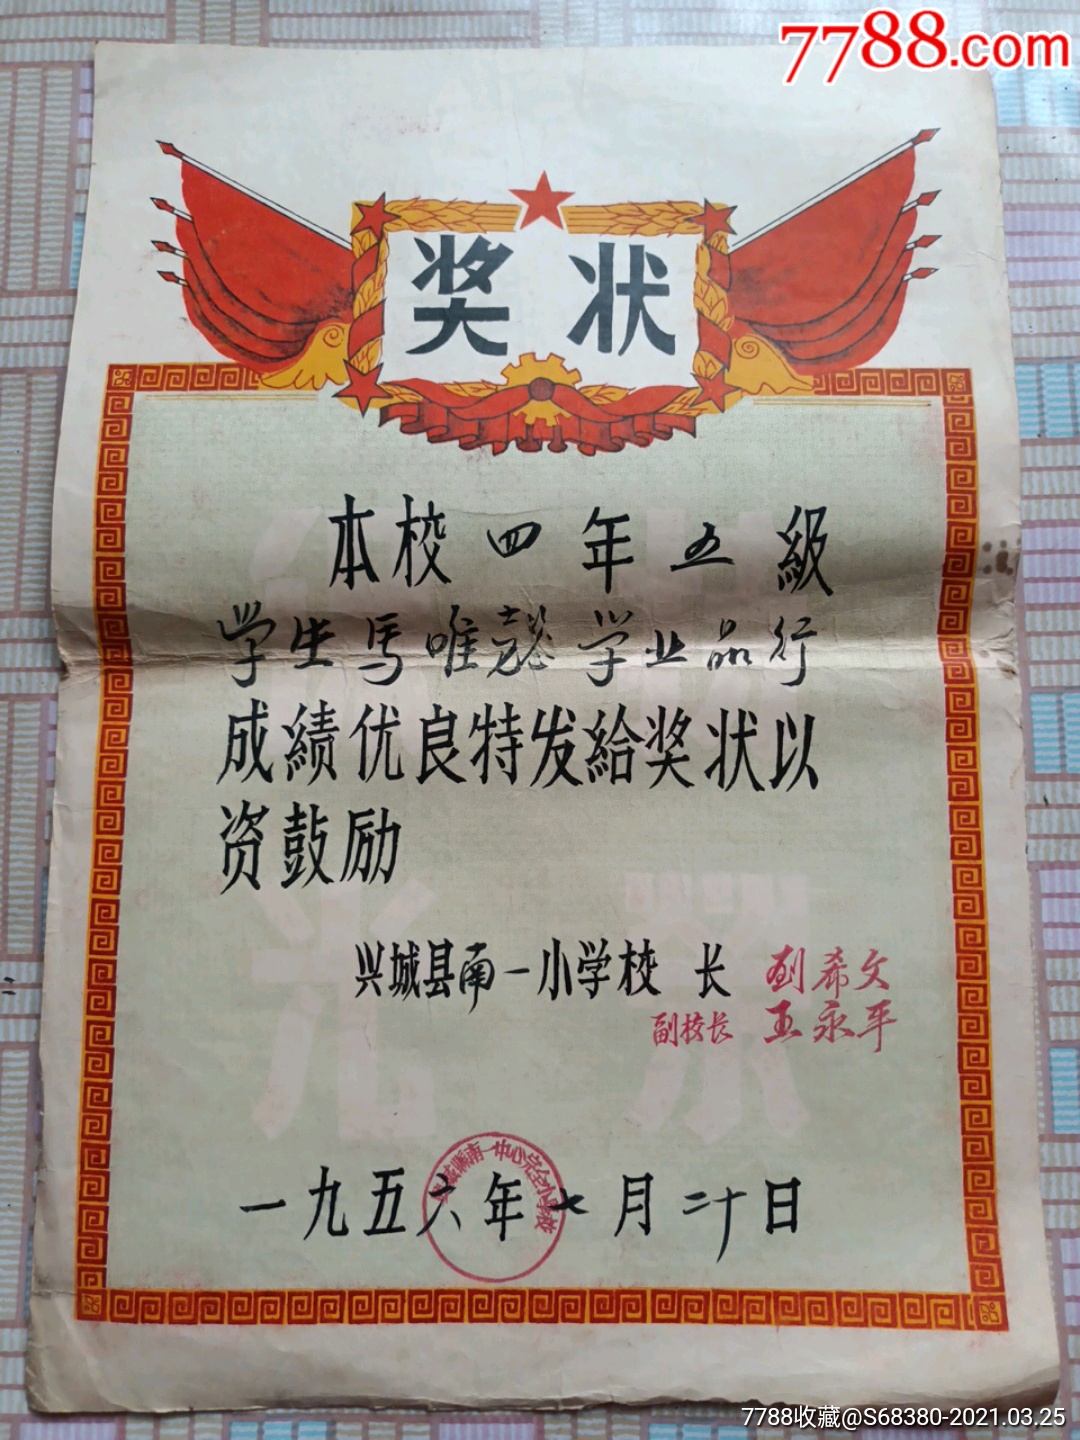 7788.com
奖状
本校四年五級
学生馬唯懿学业品行
成績优良特发給奖状以
资鼓励
兴城县南一小学校 长 刘希文
副校长 王永平
一九五六年七月二十日
兴城縣南一中心完全小学校
7788收藏@S68380-2021.03.25